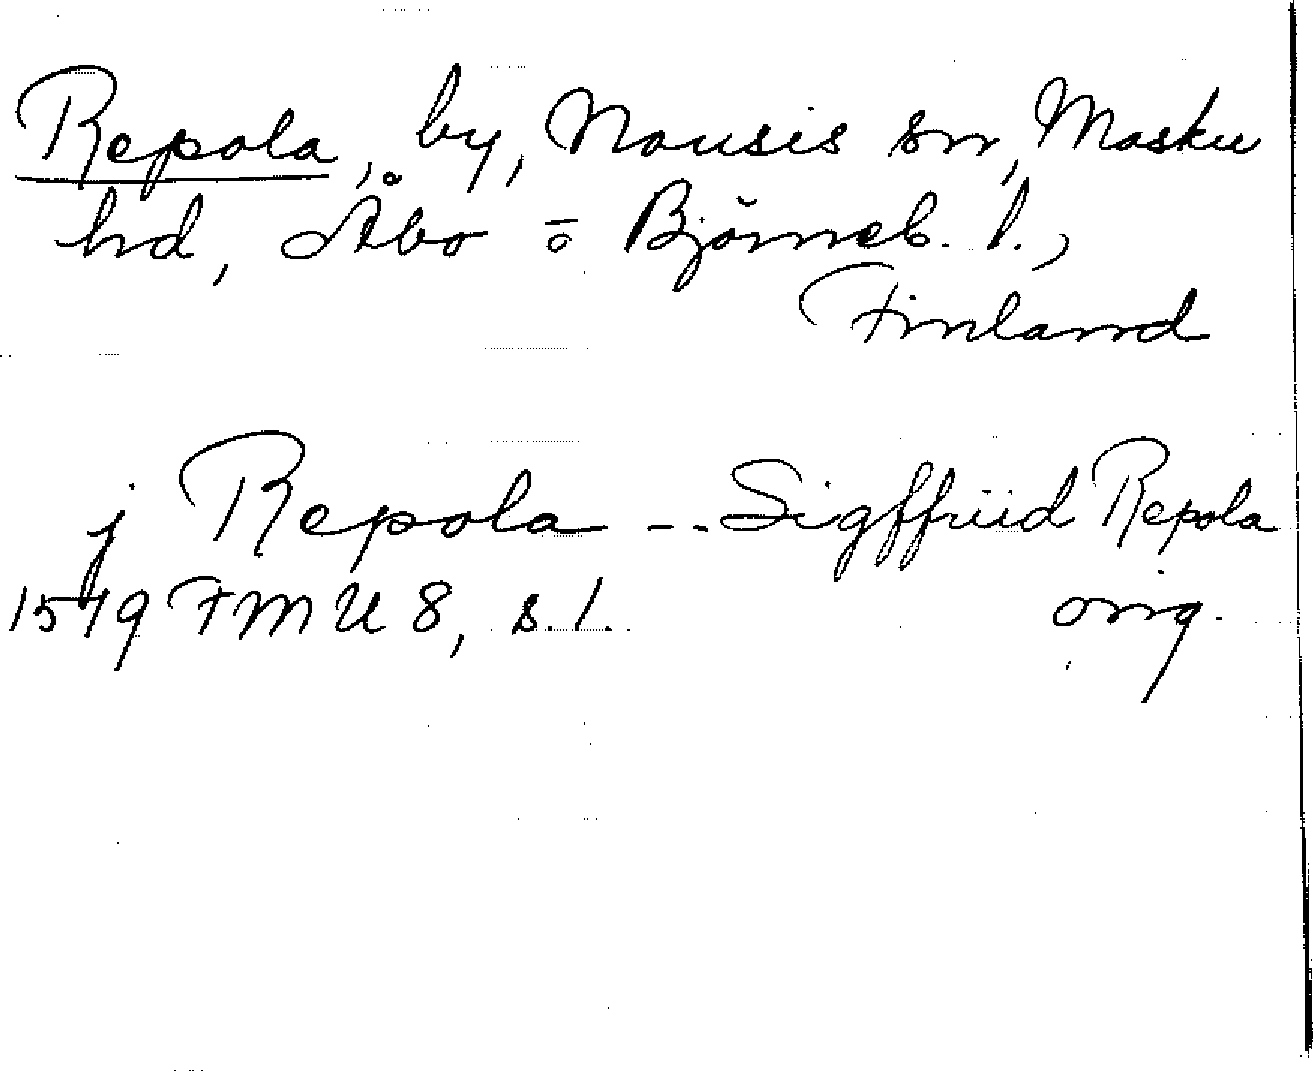 Repola, by, Nousis sn, Masku
hd, Åbo o Björneb. l.,
Finland
j Repola -- Sigffriid Repola
1549 FMU 8, s. 1. orig.